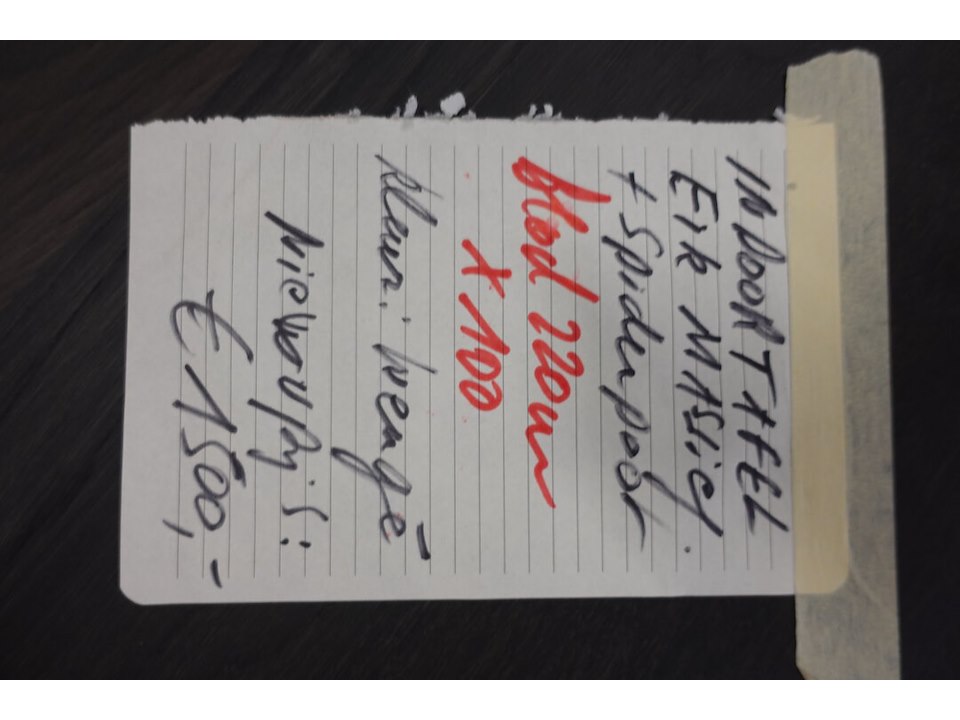 INDOORTAFEL
Eik MASSief.
+ Spiderpoot
blad 220m
x 100
kleur: wengé
Nieuwprijs:
€ 1500,-